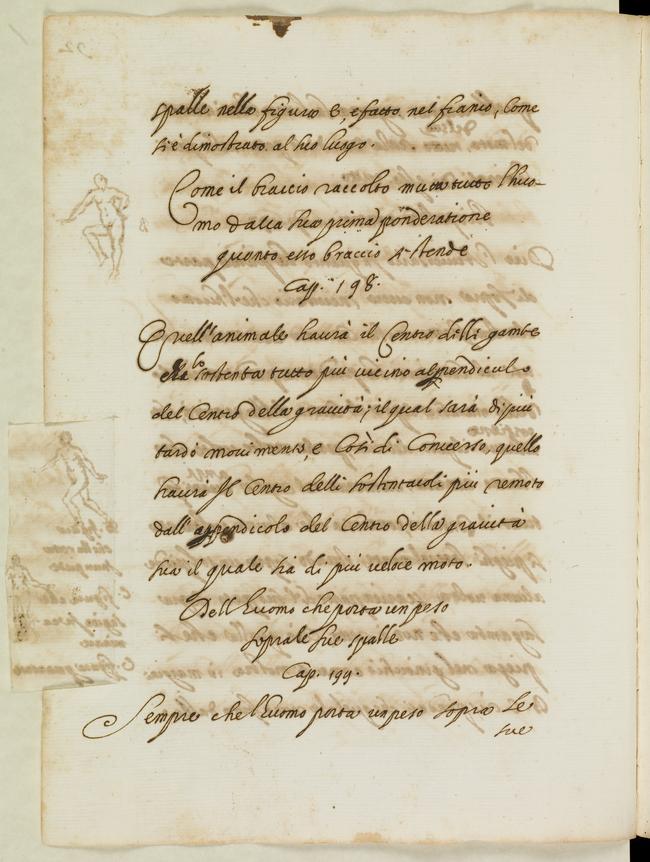 92
spalle nella figura &, e fatto nel fianco, Come
si è dimostrato al suo luogo.
Come il braccio raccolto muta tutto l'huo-
mo dalla sua prima ponderatione
quanto esso braccio s'stende
Cap. 198.
Quell'animale haurà il Centro delli gambe
che lo sostenta tutto più vicino al pendiculo
del Centro della grauità; il qual sarà di più
tardo mouimento, e Così di Conuerso, quello
haurà il Centro delli sostentacoli più remoto
dall' appendicolo del Centro della grauità
sua il quale sia di più veloce moto.
Dell'huomo che porta un peso
sopra le sue spalle
Cap. 199.
Sempre che l'huomo porta un peso sopra Le
sue